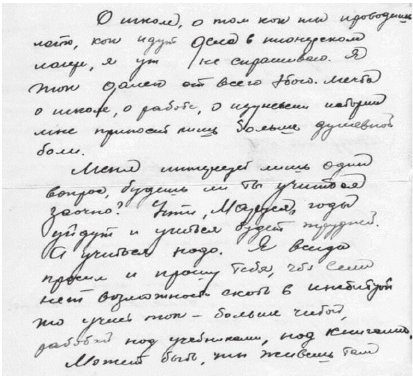 О школе, о том как ты проводишь
лето, как идут дела в пионерском
лагере, я уж не спрашиваю. Я
так далек от всего этого. Мечты
о школе, о работе, о изучении истории
мне приносят лишь больше душевной
боли.
Меня интересует лишь один
вопрос, будешь ли ты учиться
заочно? Учти, Маруся, годы
уйдут и учиться будет трудней.
А учиться надо. Я всегда
просил и прошу тебя, что если
нет возможности ехать в институт
то учись так – больше читай,
работай над учебниками, над книгами.
Может быть, ты живешь там